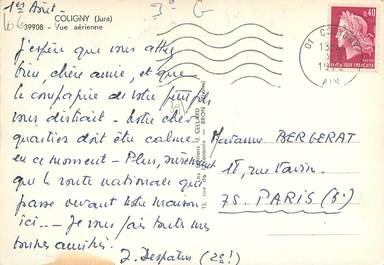 1er Août -
COLIGNY (Jura)
39908 - Vue aérienne
3° G
66
J'espère que vous allez
bien, chère amie, et que
la compagnie de votre petit fils
vous distrait - Votre cher
quartier doit être calme
en ce moment - Plus, sûrement
que la route nationale qui
passe devant notre maison
ici.. - Je vous fais toutes mes
toutes amitiés.
J. Despatin (2e!)
Les Editions J. CELLARD
BRON
01 COLIGNY
13
19
AIN
0,40
REPUBLIQUE FRANÇAISE
Madame BERGERAT
18, rue Vavin.
75 - PARIS (6e)